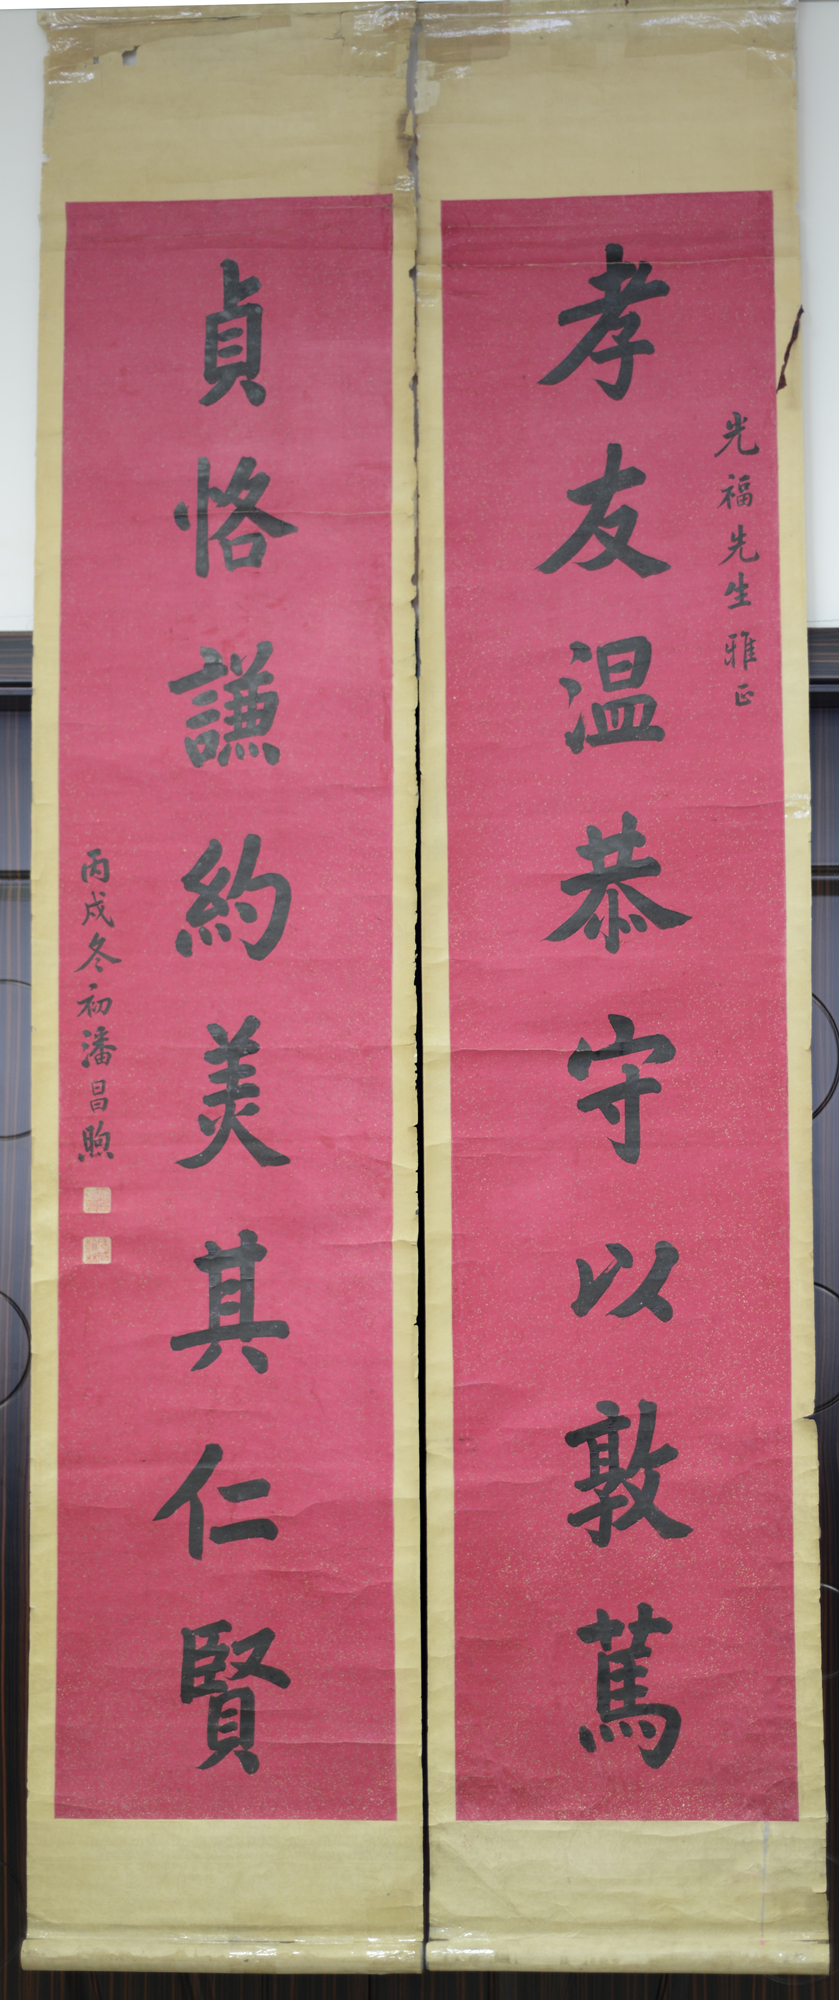 光福先生雅正
孝友温恭守以敦篤
貞恪謙約美其仁賢
丙戌冬初潘昌煦